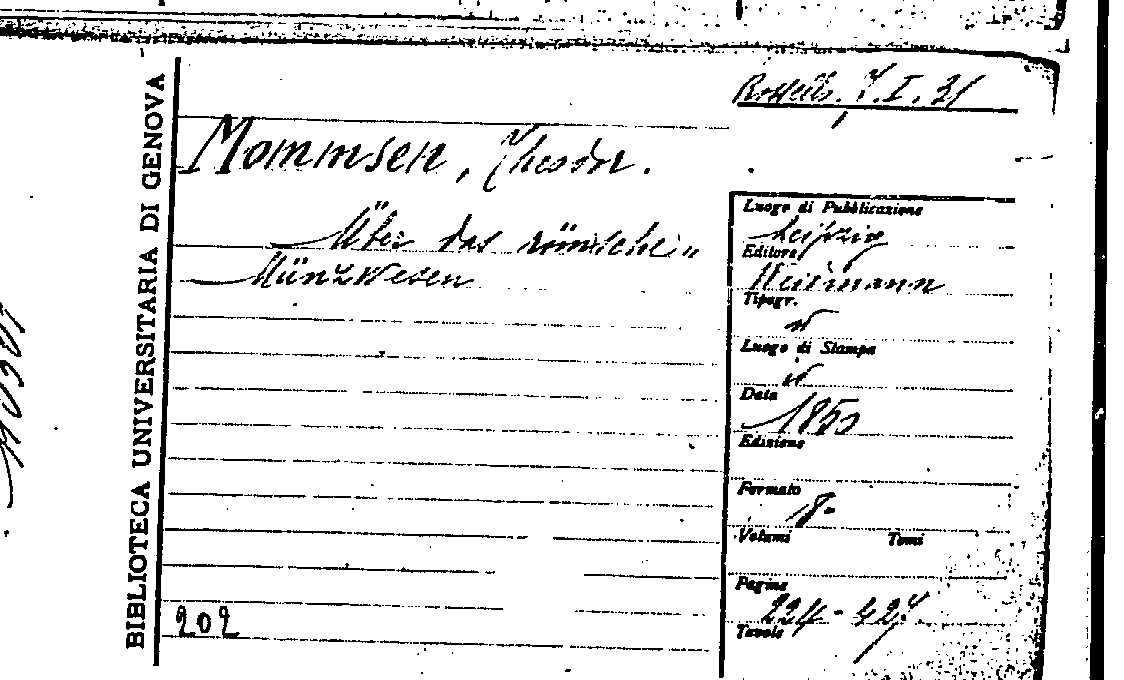 BIBLIOTECA UNIVERSITARIA DI GENOVA
Mommsen, Theodor.
Über das römischein
Münzwesen
202
Luogo di Pubblicazione
Leipzig
Editore
Weidmann
Tipogr.
Luogo di Stampa
Data
1850
Edizione
Formato
8°
Volumi Tomi
Pagine
224-427
Tavole